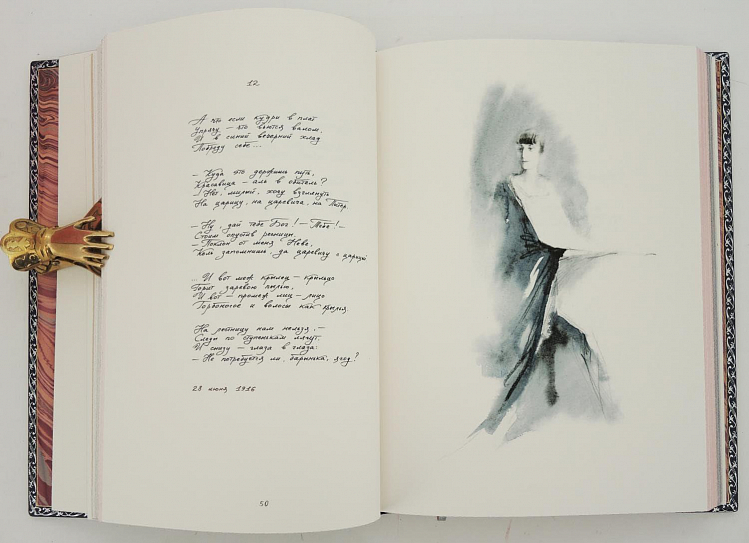 12
А что если кудри в плат
Упрячу – что вьются валом,
И в синий вечерний хлад
Побреду себе...
– Куда это держишь путь,
Красавица – аль в обитель?
– Нет, милый, хочу взглянуть
На царицу, на царевича, на Питер
– Ну, дай тебе Бог! – Тебе! –
Стоим опустив ресницы.
– Поклон от меня Неве,
Коль запомнишь, да царевичу с царицей
...И вот меж крылец – крыльцо
Горит заревою пылью,
И вот – промеж лиц – лицо
Горбоносое и волосы как крылья
На лестницу нам нельзя, –
Следы по ступенькам лягут.
И снизу – глаза в глаза:
– Не потребуется ли, барынька, ягод?
28 июня 1916
50